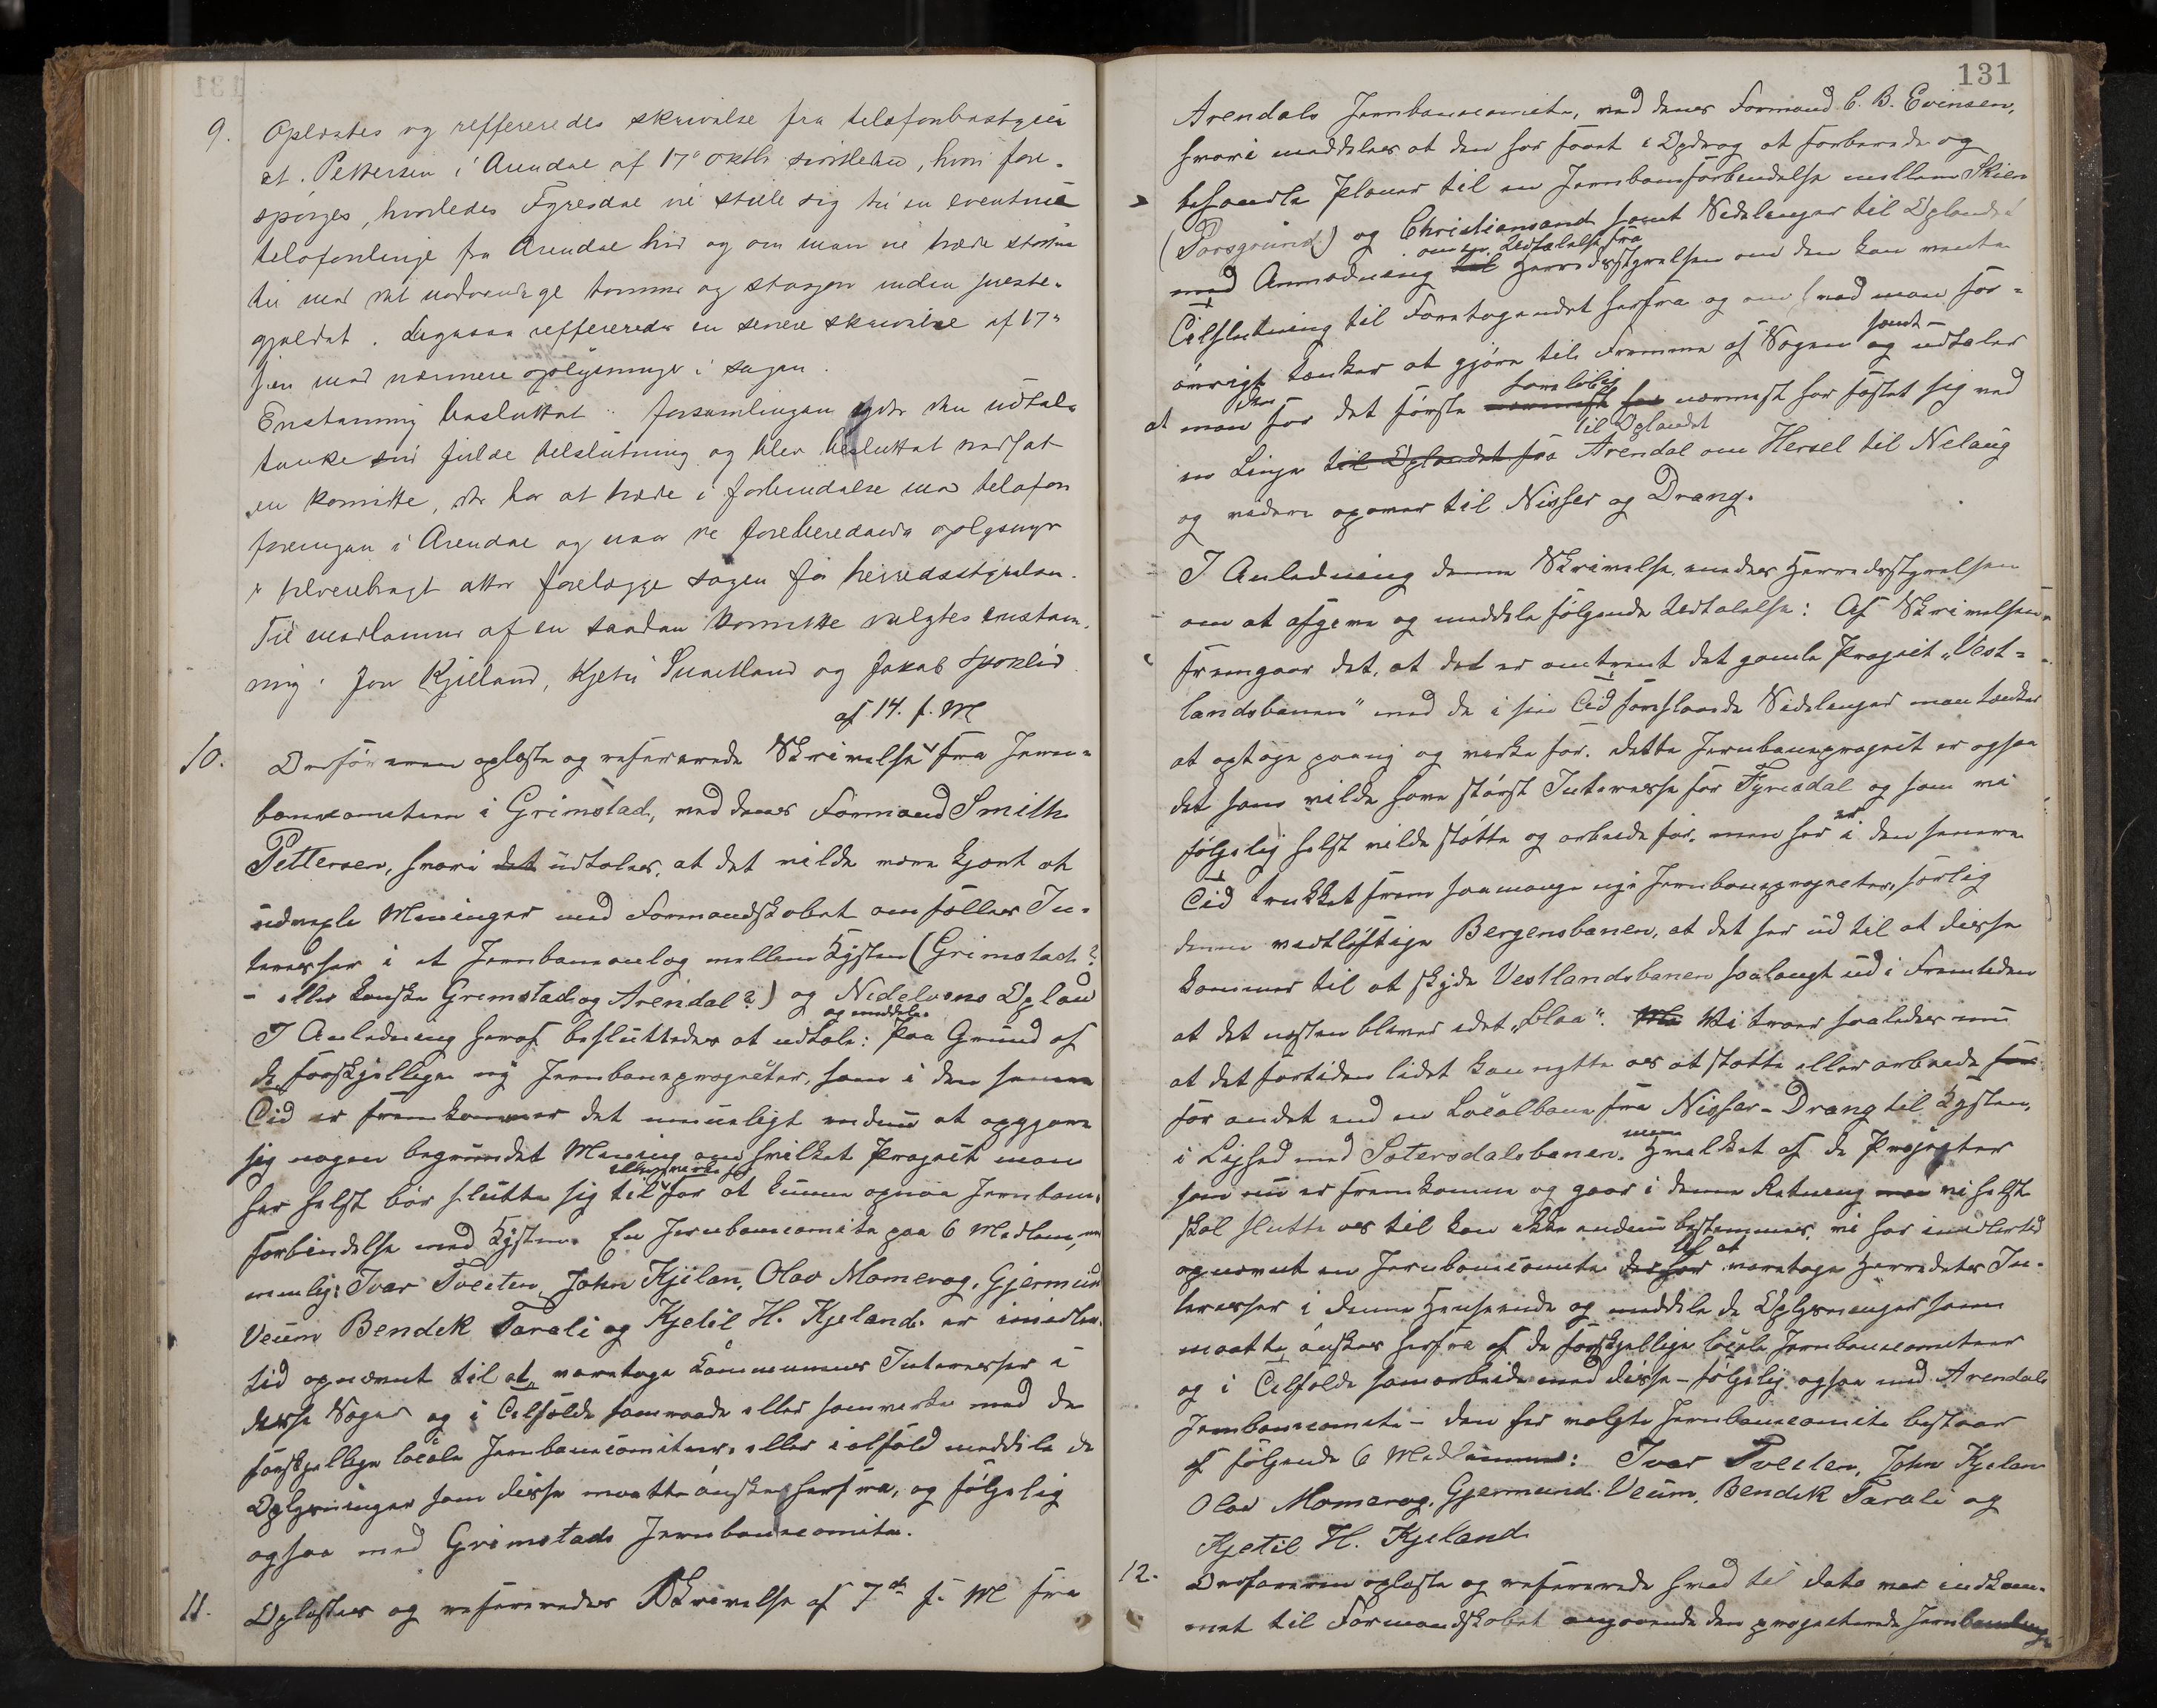 9. Oplæstes og reffereredes skrivelse fra telefonbestyrer
at. Pettersen i Arendal af 17de oktbr sidstleden, hvori fore-
spörges, hvorledes Fyresdal vil stille sig til en eventuel
telefonlinje fra Arendal hid og om man vil træde støttende
til med det nødvendige tømmer og stolper inden preste-
gjeldet. Ligesaa reffereredes en senere skrivelse af 17de
ds. med nærmere oplysninger i sagen.
Enstemmig besluttet: forsamlingen yder den udtalte
tanke sin fulde tilslutning og blev besluttet nedsat
en komitte, der har at træde i forbindelse med telefon
foreningen i Arendal og naar de forberedende oplysnger
er tilveiebragt atter forelægge sagen for herredsstyrelsen.
Til medlemmer af en saadan komitte valgtes enstem-
mig: Jon Kjilland, Kjetil Suartland og Jakob Spoklid
af 14. f. M
10. Ordföreren oplæste og refererede Skrivelse fra Jern-
banecomiteen i Grimstad, ved dennes Formand Smith
Pettersen, hvori det udtales, at det vilde være kjært at
udvexle Meninger med Formandskabet om fælles In-
teresser i et Jernbaneanlæg mellem Kysten (Grimstad?
- eller kanske Grimstad og Arendal?) og Nidelvens Opland
og meddele
I Anledning heraf besluttedes at udtale: Paa Grund af
de forskjellige ny Jernbaneprojecter, som i den senere
Tid er fremkommer det umuligt endnu at opgjøre
sig nogen begrundet Mening om hvilket Projeit man
eller virke for
her helst bör slutte sig til for at kunne opnaa Jernbane-
forbindelse med Kysten. En Jernbanecomite paa 6 Medlemmer
nemlig: Ivar Tveiten, John Kjilan, Olav Momrag, Gjermund
Veum Bendik Tarali og Kjetil H. Kjeland. er imidler-
tid opnævnt til at varetage Kommunens Interesser i
denne Sag og i Tilfælde samraade eller samvirke med de
forskjellige locale Jernbanecomiteer, eller ialfald meddele de
Oplysninger som disse maatte önske herfra, og fölgelig
ogsaa med Grimstads Jernbanecomite.
11. Oplæstes og refereredes Skrivelse af 7de f. M fra
131
Arendals Jernbanecomite, ved denes Formand C. B. Evensen,
hvori meddeles at den har faaet i Opdrag at forberede og
behandle Planer til en Jernbaneforbindelse mellem Skien
(Porsgrund) og Christiansand samt Sidelinjer til Oplandet
om en Udtalelse fra
med Anmodning til Herredsstyrelsen om den kan vente
Tilslutning til Foretagendet herfra og om hvad man for-
samt
övrigt tænker at gjöre til Fremme af Sagen og udtaler
foreløbig
at man for det förste nærmest har nærmest har fæstet sig ved
til Oplandet
en Linje til Oplandet fra Arendal om Hersel til Nelaug
og videre opover til Nisser og Drang.
I Anledning denne Skrivelse enedes Herredsstyrelsen
om at afgive og meddele fölgende Udtalelse: Af Skrivelsen
fremgaar det, at det er omtrent det gamle Projeit „Vest-
landsbanen" med de i sin Tid foreslaaede Sidelinjer man tænker
at optage paany og virke for. Dette Jernbaneprojeit er ogsaa
det som vilde have störst Interesse for Fyresdal og som vi
er
fölgelig helst vilde stötte og arbeide for, men her i den senere
Tid trukket frem saamange nye Jernbaneprojecter, særlig
denne vidtlöftige Bergensbanen, at det ser ud til at disse
kommer til at skyde Vestlandsbanen saalangt ud i Fremtiden
at det næsten bliver i det „Blaa". Vi troer saaledes nu
at det fortiden lidet kan nytte os at støtte eller arbeide for
for andet end en Localbane fra Nisser-Drang til Kysten,
men
i Lighed med Sætersdalsbanen. Hvilket af de Projecter
som nu er fremkomne og gaar i denne Retning man vi helst
skal slutte os til kan ikke endnu bestemmes, vi har imidlertid
til at
opnævnt en Jernbanecomite der har varetage Herredets In-
teresser i denne Henseende og meddele de Oplysninger som
maatte önskes herfra af de forskjellige locale Jernbanecomiteer
og i Tilfælde samarbeide med disse – fölgelig ogsaa med Arendals
Jernbanecomite – den her valgte Jernbanecomite bestaar
af fölgende 6 Medlemmer: Ivar Tveiten, John Kjelan
Olav Momrag, Gjermund Veum, Bendik Tarali og
Kjetil H. Kjeland
12. Ordföreren oplæste og refererede hvad til Dato var indkom-
met til Formandskabet angaaende den projecterede Jernbanelinje